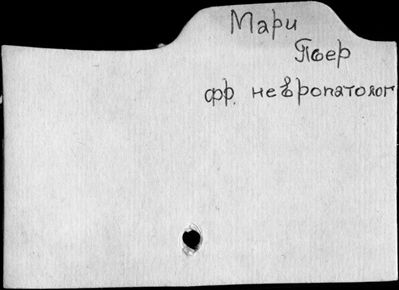 Мари
Пьер
фр. невропатолог